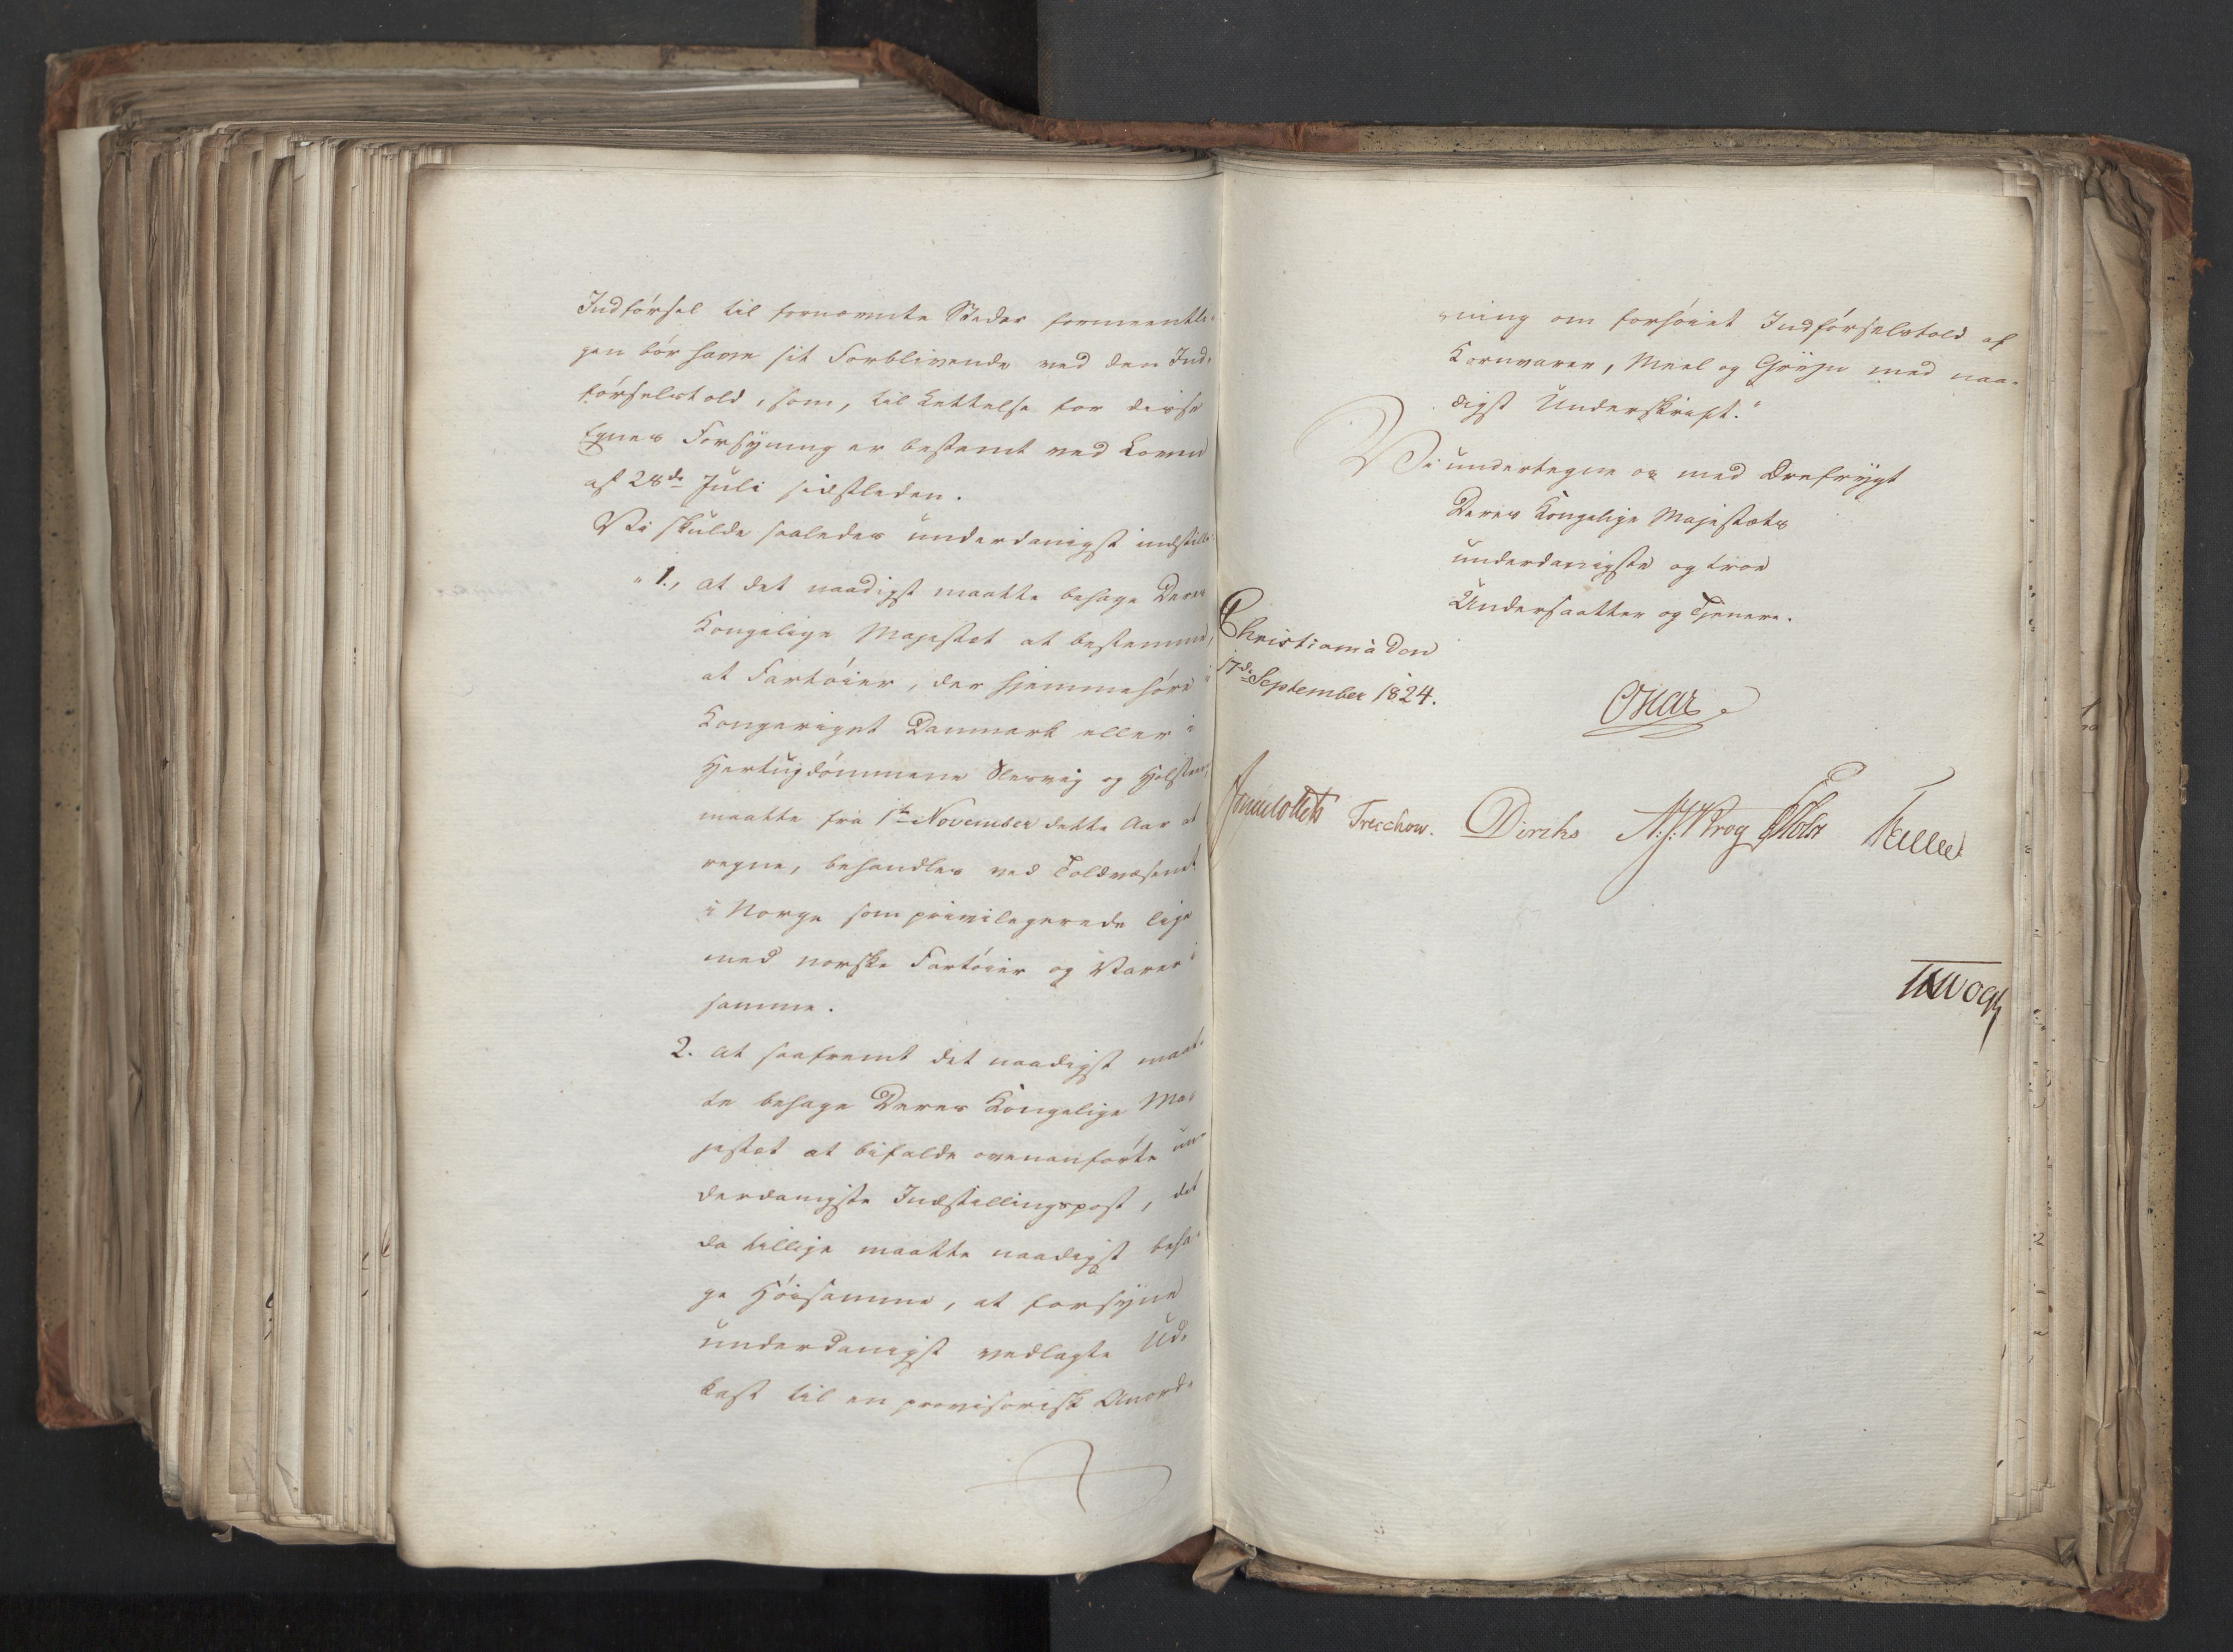 Indförsel til fornævnte Steder formeentli-
gen bör have sit Forblivende ved den Ind-
förselstold, som, til Lettelse for disse
Egnes Forsÿning er bestemt ved Loven
af 28de Juli sidstleden.
Vi skulde saaledes underdanigst indstille:
"1., at det naadigst maatte behage Deres
Kongelige Majestet at bestemme,
at Fartöier, der hjemmehöre i
Kongeriget Danmark eller i
Hertugdömmene Slesvig og Holsteen,
maatte fra 1te November dette Aar at
regne, behandles ved Toldvæsenet
i Norge som privilegerede lige
med norske Fartöier og Varer i
samme.
2. at saafremt det naadigst maat-
te behage Deres Kongelige Ma-
jestet at bifalde ovenanförte un-
derdanigste Indstillingspost, det
da tillige maatte naadigst beha-
ge Höisamme, at forsÿne
underdanigst vedlagte Ud-
kast til en provisorisk Anord-
-ning om forhöiet Indförselstold af
Kornvarer, Meel og Grÿn med naa-
digst Underskrift."
Vi undertegne os med Ærefrÿgt
Deres Kongelige Majestæts
underdanigste og troe
Undersaatter og Tjenere.
Christiania den
17de September 1824.
Oscar
Treschow. Diriks